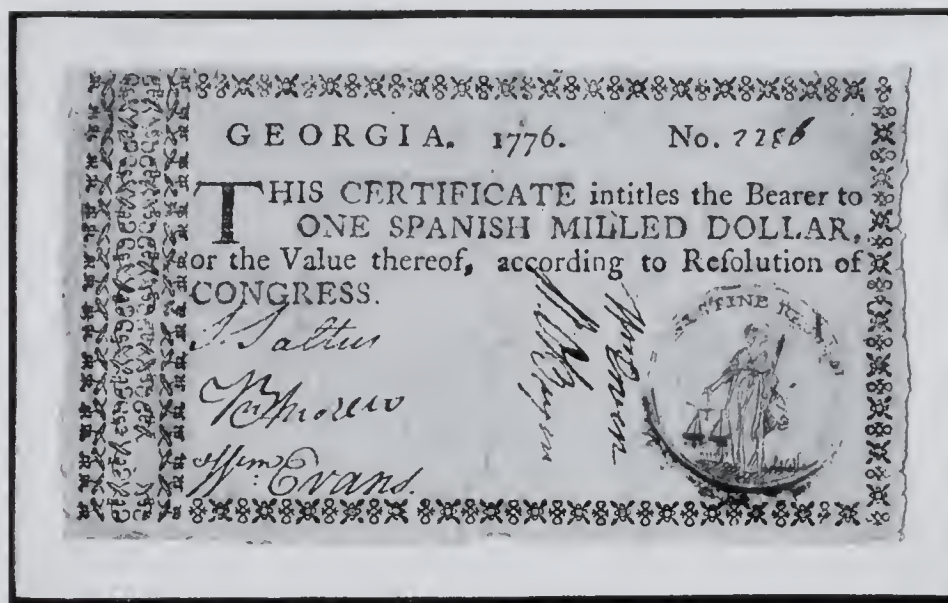 GEORGIA. 1776. No. 2286
THIS CERTIFICATE intitles the Bearer to
ONE SPANISH MILLED DOLLAR,
or the Value thereof, according to Reſolution of
CONGRESS.
Saltus
Wm Evans.